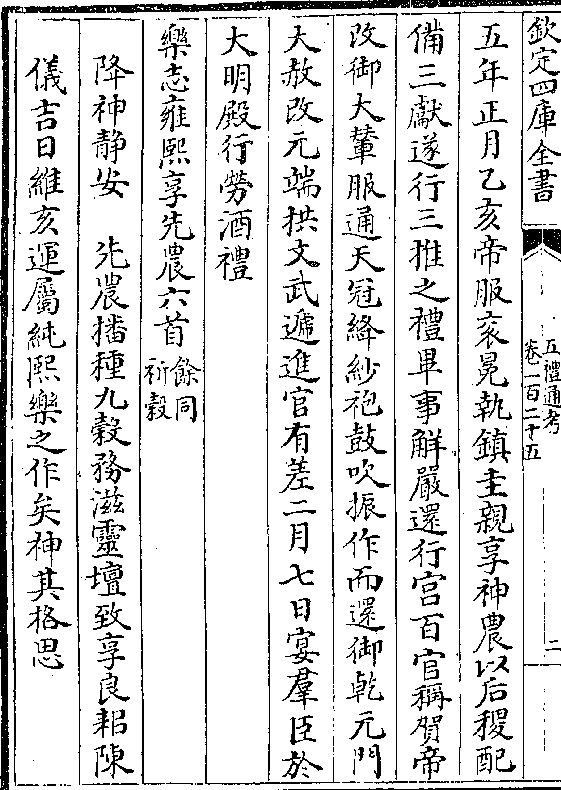 欽定四庫全書
五禮通考
卷一百二十五
二
五年正月乙亥帝服衮冕執鎮圭親享神農以后稷配
備三獻遂行三推之禮畢事解嚴還行宮百官稱賀帝
改御大輦服通天冠絳紗袍鼓吹振作而還御乾元門
大赦改元端拱文武遞進官有差二月七日宴羣臣於
大明殿行勞酒禮
樂志雍熙享先農六首餘同祈穀
降神靜安 先農播種九穀務滋靈壇致享良耜陳
儀吉日維亥運屬純熙樂之作矣神其格思